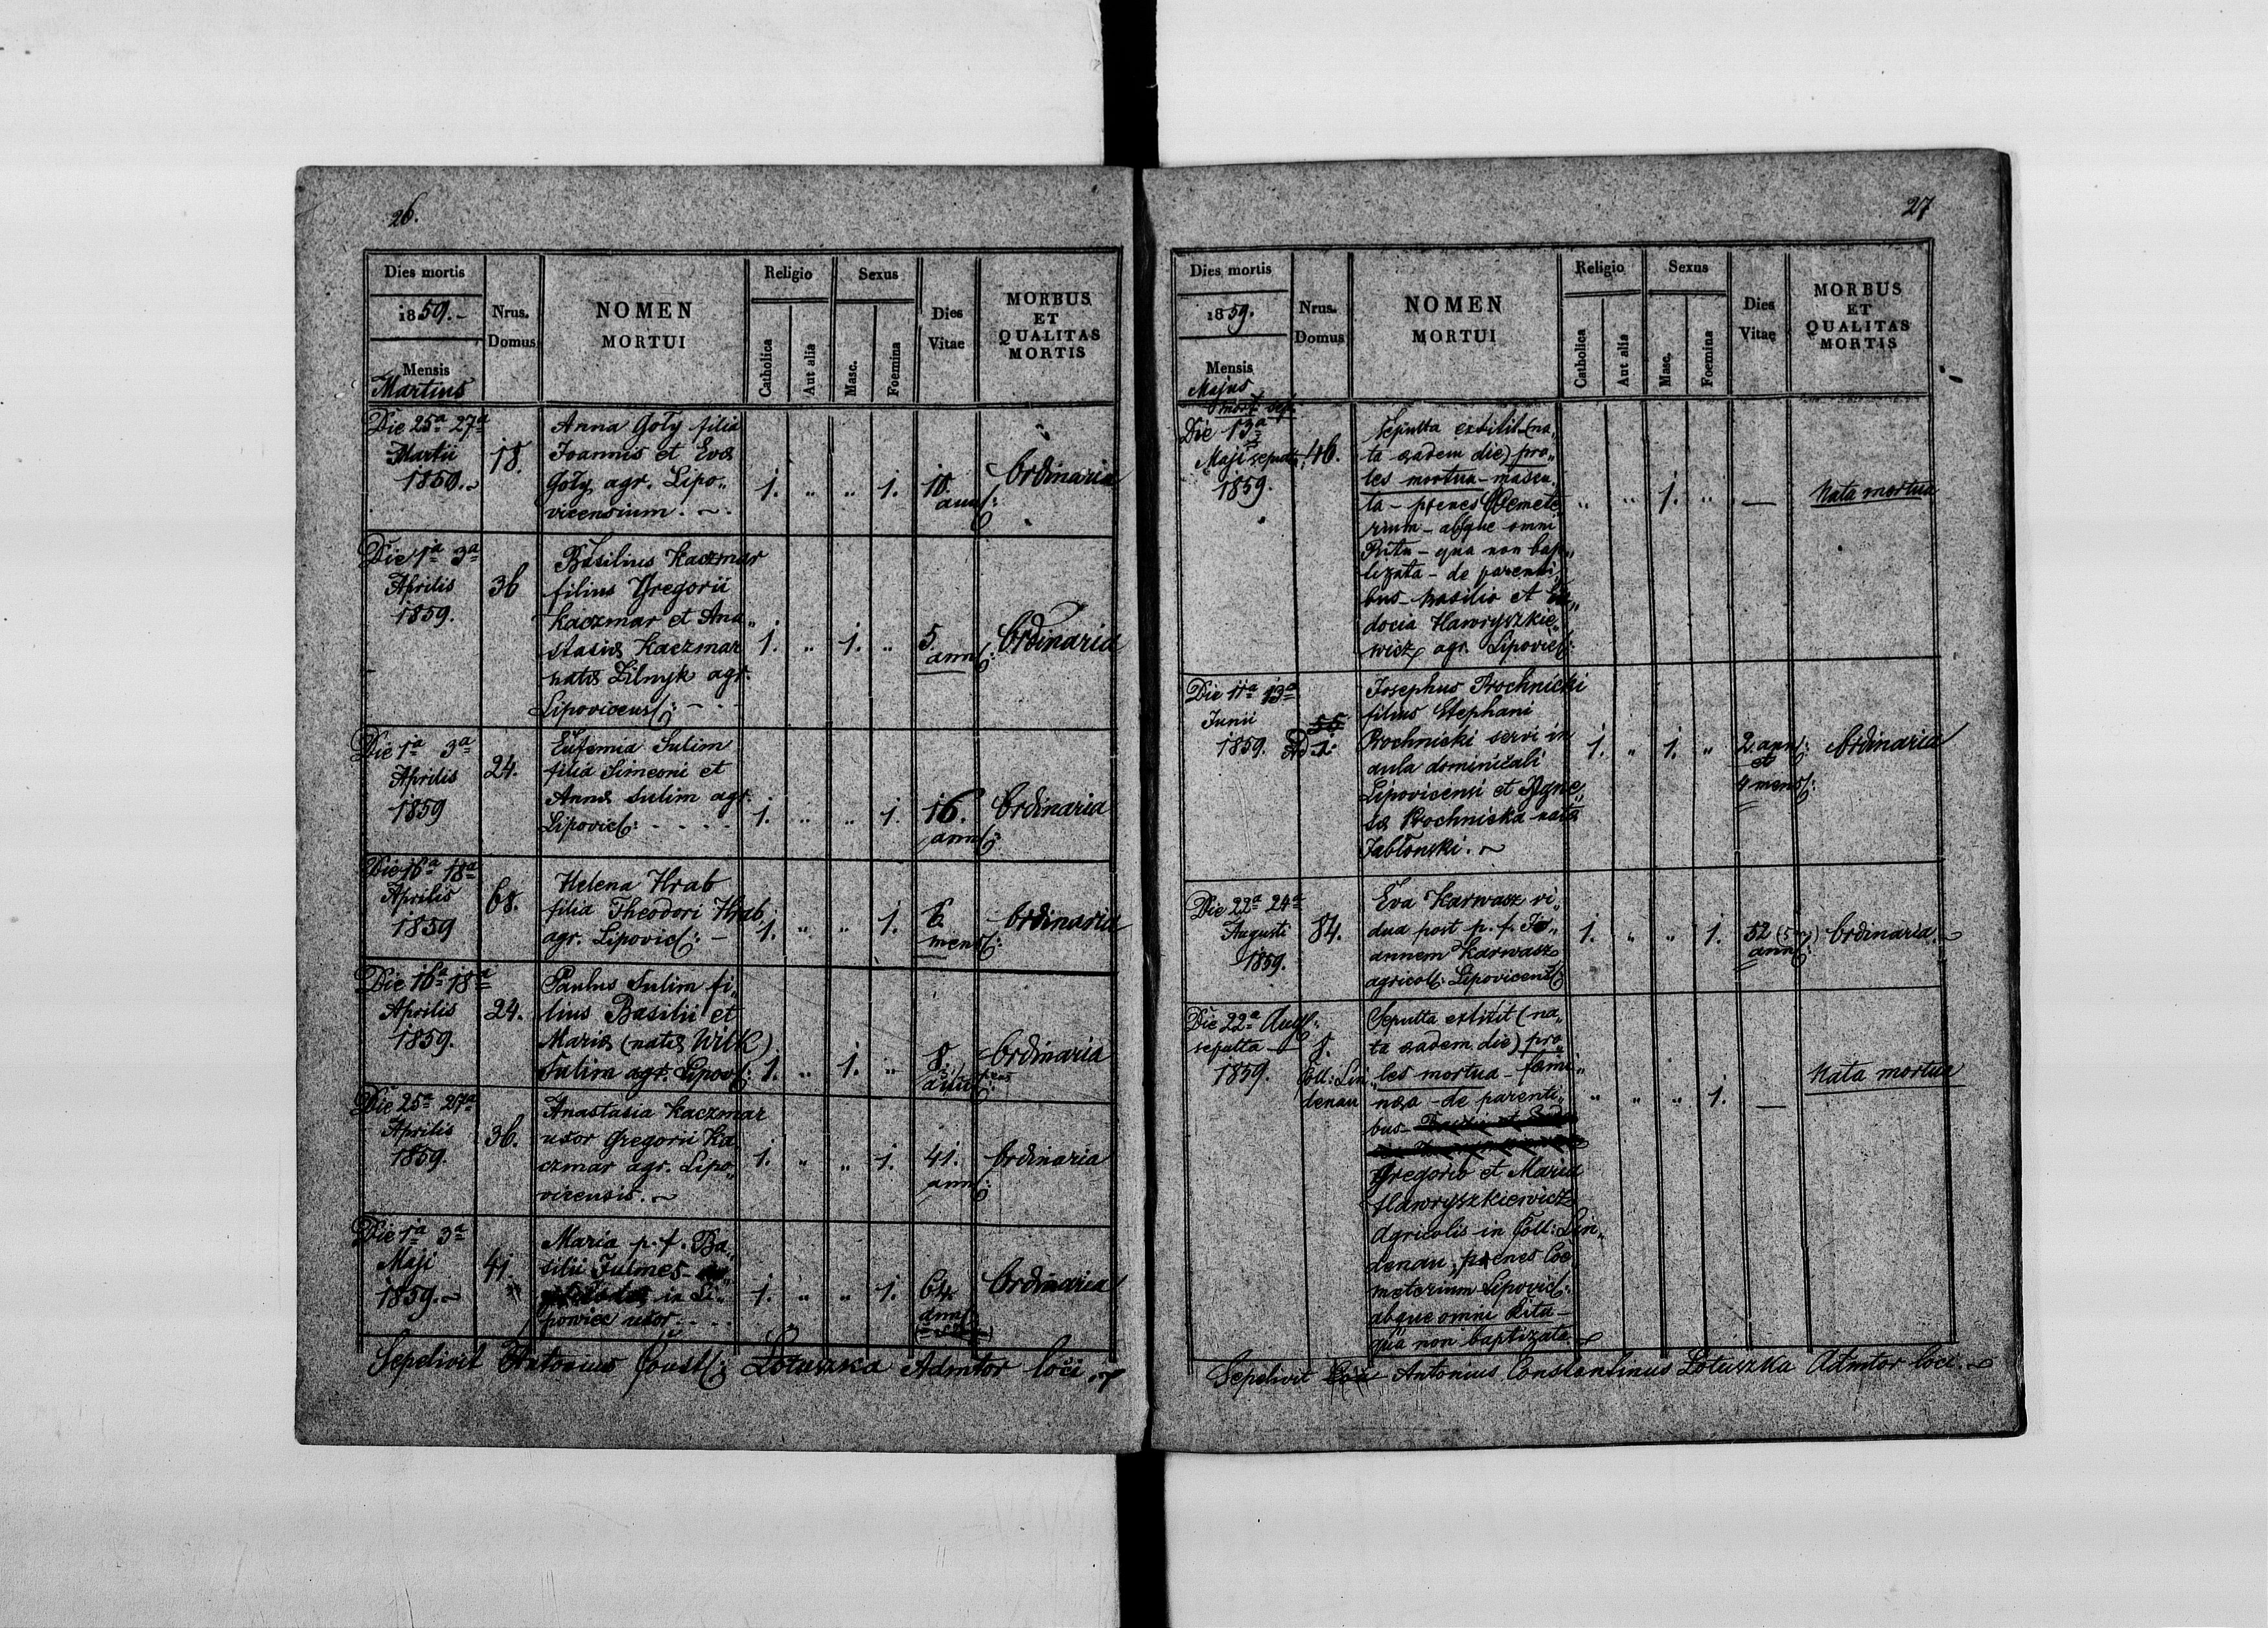 26.
Dies mortis
1859.-
Mensis
Martius
Nrus.
Domus
NOMEN
MORTUI
Religio
Catholica
Aut alia
Sexus
Masc.
Foemina
Dies
Vitae
MORBUS
ET
QUALITAS
MORTIS
Die 25a 27a
Martii
1859.
18.
Anna Goły filia
Joannis et Evæ
Goły agr. Lipo„
vicensium.
1. „ „ 1.
ann:
Ordinaria
Die 1a 3a
Aprilis
1859.
36
Basilius Kaczmar
filius Gregorii
Kaczmar et Ana„
stasiæ Kaczmar
natæ Zilnyk agr.
Lipovicens:
1. „ 1. „
5.
ann:
Ordinaria
Die 1a 3a
Aprilis
1859
24.
Eufemia Sulim
filia Simeoni et
Annæ Sulim agr.
Lipovic:
1. „ „ 1.
16.
ann:
Ordinaria
Die 16a 18a
Aprilis
1859
68.
Helena Hrab
filia Theodori Hrab
agr. Lipovic:
1. „ „ 1.
6.
mens:
Ordinaria
Die 16a 18a
Aprilis
1859.
24.
Paulus Sulim fi„
lius Basilii et
Mariæ (natæ Wilk)
Sulim agr. Lipov:
1. „ 1. „
8.
Ordinaria
Die 25a 27a
Aprilis
1859.
36.
Anastasia Kaczmar
uxor Gregorii Ka
czmar agr. Lipo„
vicensis.
1. „ „ 1.
41.
ann:
Ordinaria
Die 1a 3a
Maji
1859.
41
Maria p. f. Ba„
silii Fulmes
in Li„
powiec uxor
1. „ „ 1.
64.
ann:
Ordinaria
Sepelivit Antonius Const: Łotuszka Admtor loci.
27
Dies mortis
1859.
Mensis
Majus
Nrus.
Domus
NOMEN
MORTUI
Religio
Catholica
Aut alia
Sexus
Masc.
Foemina
Dies
Vitae
MORBUS
ET
QUALITAS
MORTIS
Die 13a
Maji sepulta
1859.
46.
Sepulta extitit (na„
ta eadem die) pro„
les mortua - mascu„
la - penes Coemete
rium - absque omni
Ritu - qua non bap„
tizata - de parenti„
bus - Basilio et
docia Hawryszkie„
wicz agr. Lipovic:
„ „ 1. „ —
Nata mortua
Die 11a 13a
Junii
1859.
Ad 1.
Josephus Prochnicki
filius Stephani
Prochnicki servi in
aula dominicali
Lipovicensi et Agne„
sæ Prochnicka natæ
Jabłonski.
1. „ 1. „
2 ann:
et
4 mens:
Ordinaria
Die 22a 24a
Augusti
1859.
84.
Eva Karwasz vi„
dua post p. f. Jo„
annem Karwasz
agricol: Lipovicens:
1. „ „ 1.
52
ann:
Ordinaria.
Die 22a Aug:
sepulta
1859.
8.
Coll: Lin„
denau
Sepulta extitit (na„
ta eadem die) pro„
les mortua - femi„
nea - de parenti„
bus
Gregorio et Maria
Hawryszkiewicz
Agricolis in Coll: Lin„
denau, penes Coe„
meterium Lipovic:
absque omni Ritu -
qua non baptizata.
„ „ „ 1. —
Nata mortua
Sepelivit Antonius Constantinus Łotuszka Admtor loci.